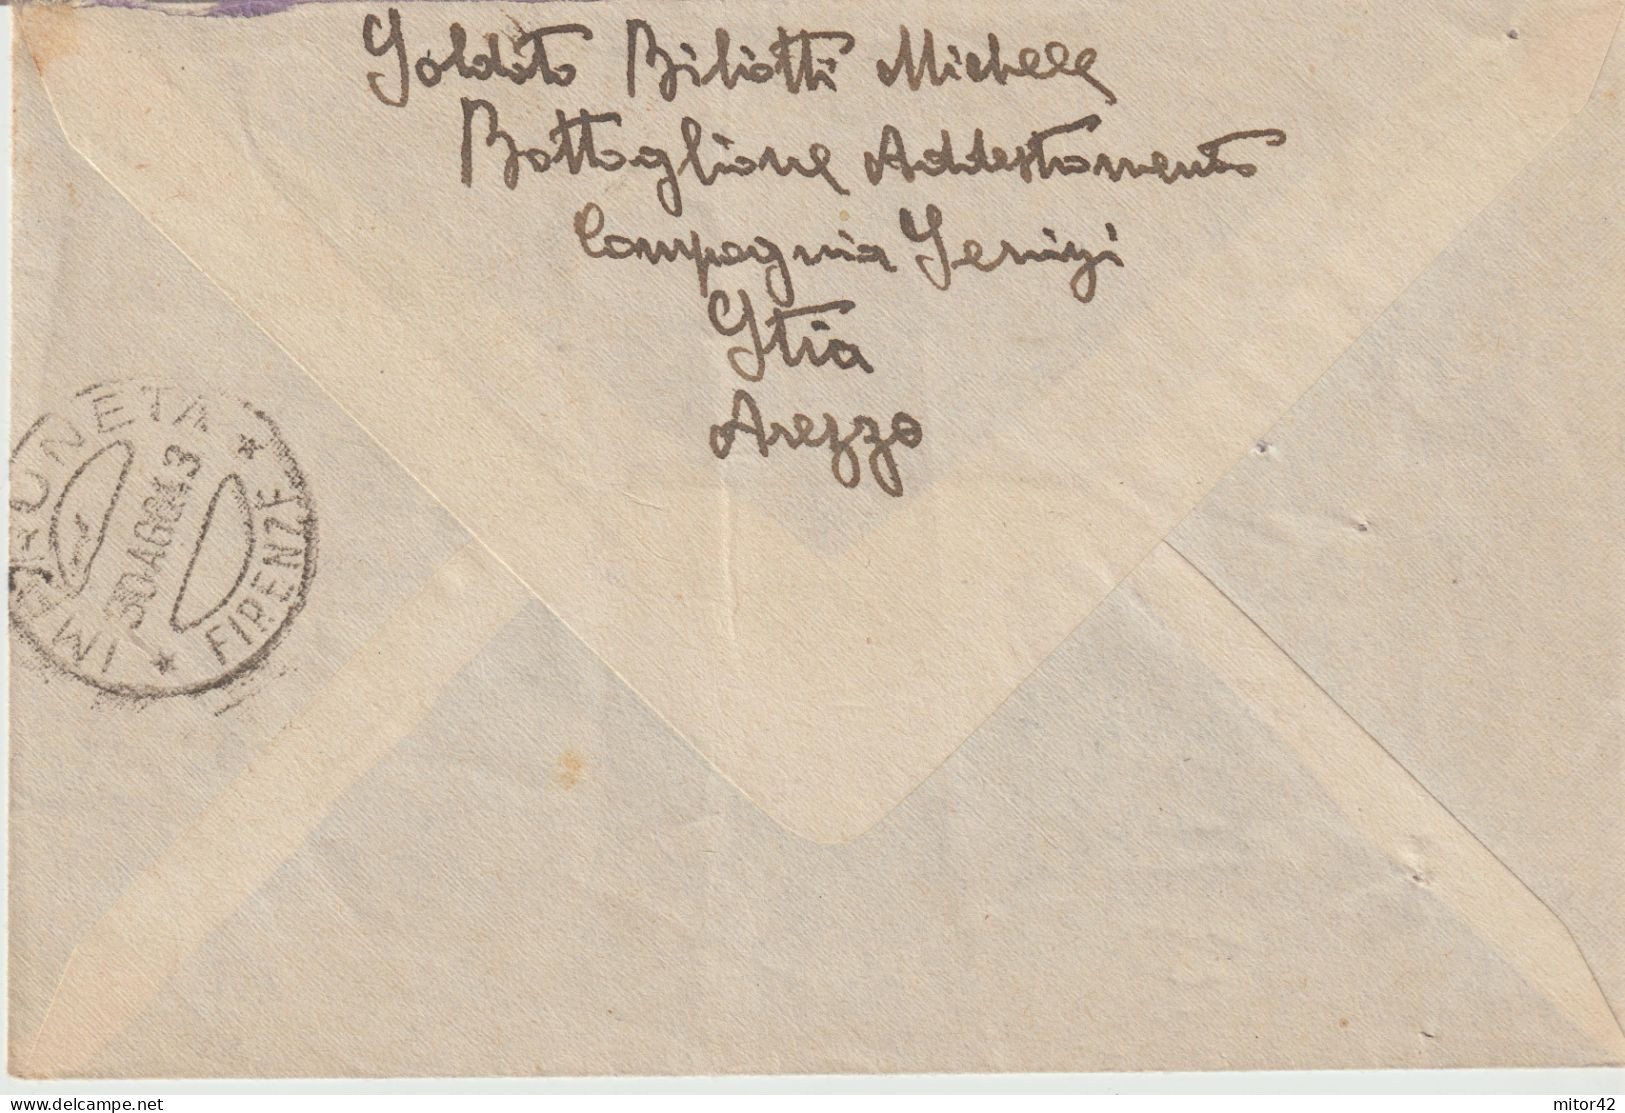 Soldato Biliotti Michele
Battaglione Addestramento
Compagnia Servizi
Stia
Arezzo
IMPRUNETA
30 AGO 43
FIRENZE
delcampe.net
mitor42